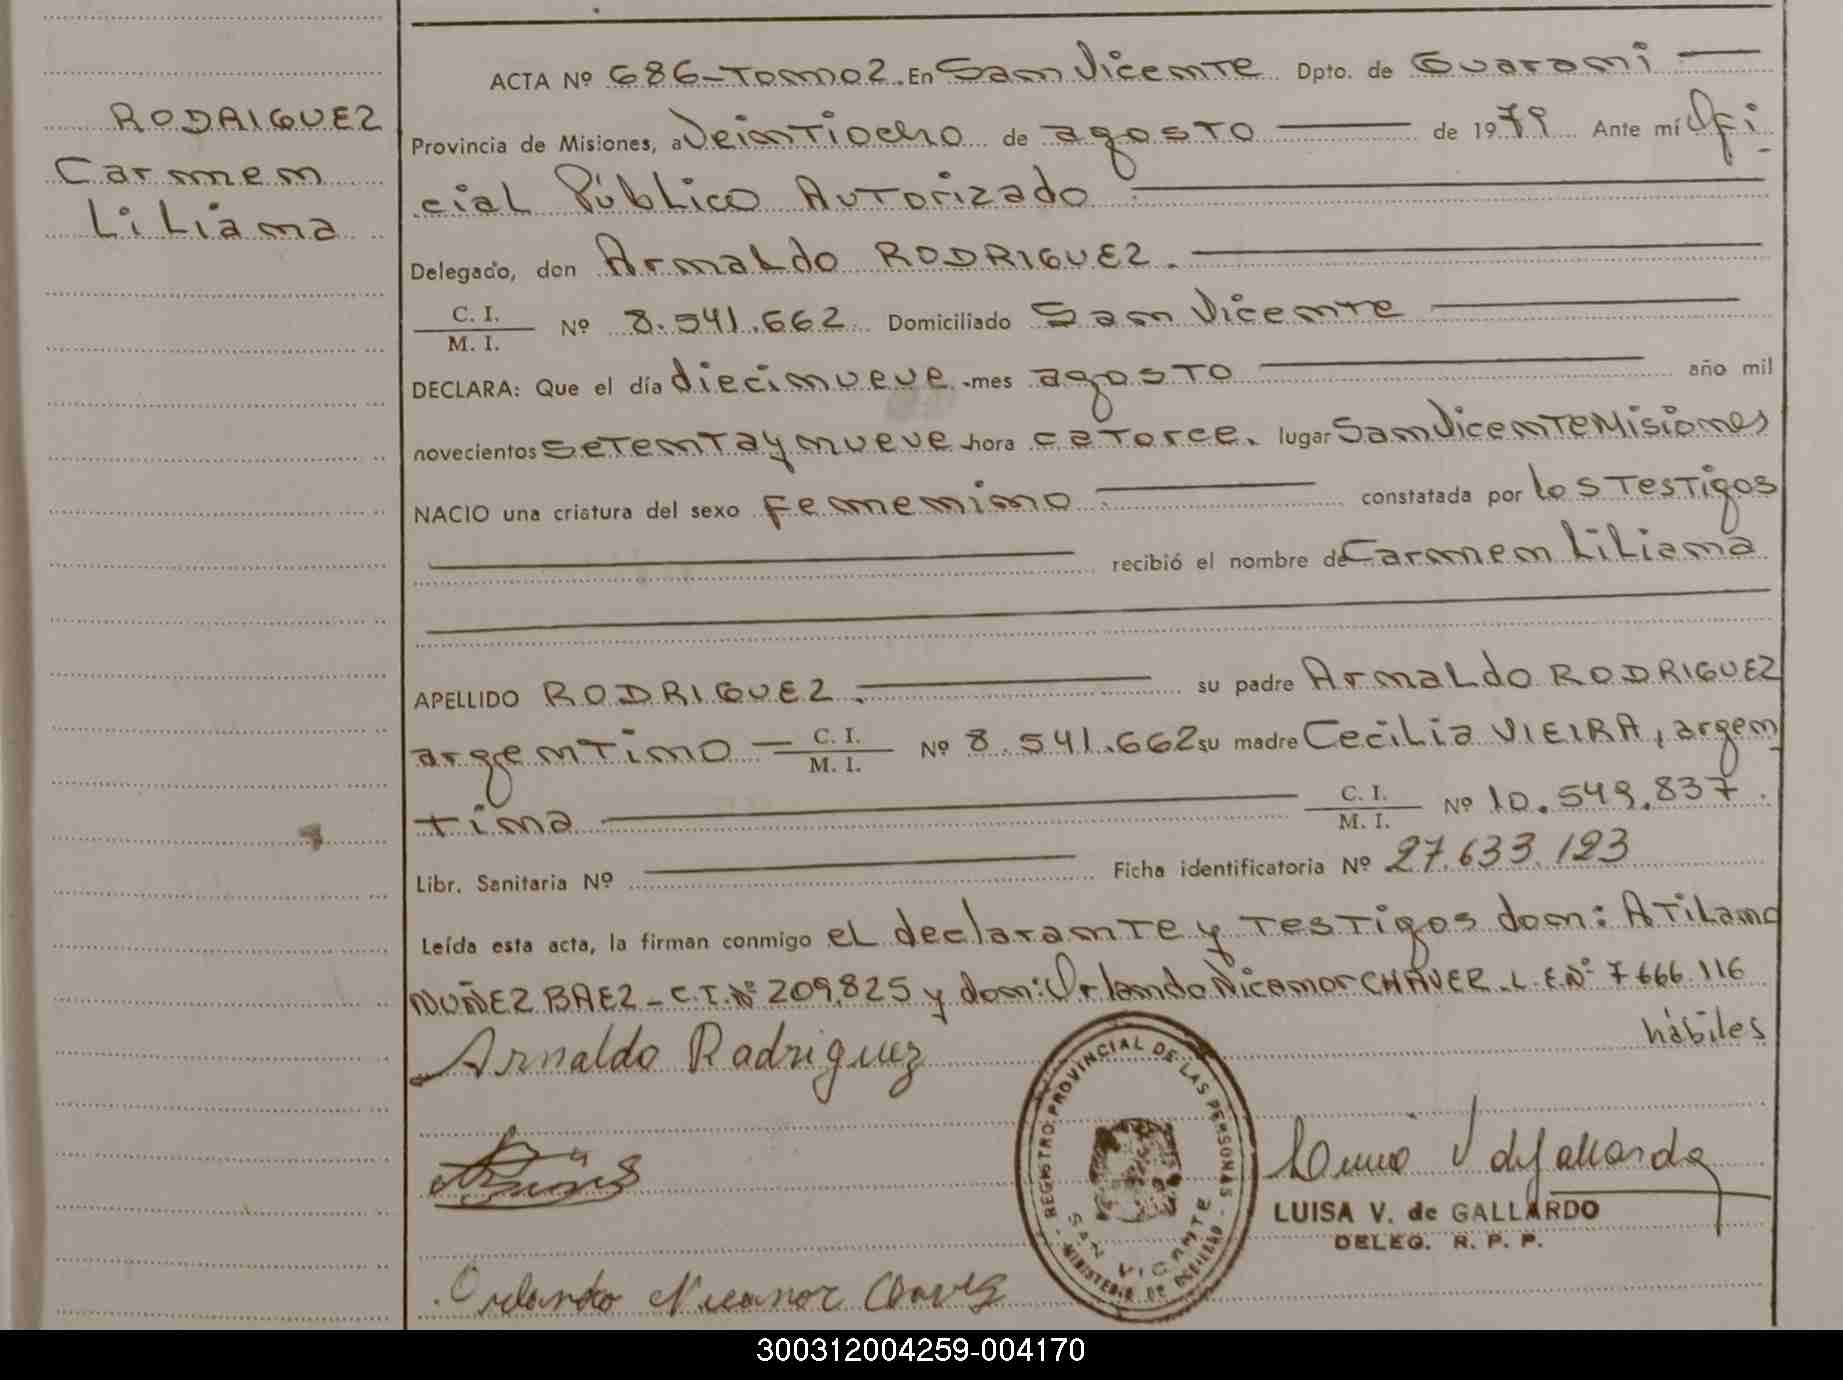 RODRIGUEZ
Carmen
Liliana
ACTA Nº 686-Tomo2. En San Vicente Dpto. de Guarani
Provincia de Misiones, a Veintiocho de agosto de 1979 Ante mí Ofi
cial Público Autorizado
Delegado, don Arnaldo RODRIGUEZ.
C. I.
M. I.
Nº 8.541.662 Domiciliado San Vicente
DECLARA: Que el día diecinueve mes agosto año mil
novecientos setenta y nueve hora catorce. lugar San Vicente Misiones
NACIO una criatura del sexo femenino constatada por los Testigos
recibió el nombre de Carmen Liliana
APELLIDO RODRIGUEZ. su padre Arnaldo RODRIGUEZ
argentino C. I. M. I. Nº 8.541.662 su madre Cecilia VIEIRA, argen
tina C. I. M. I. Nº 10.549.837.
Libr. Sanitaria Nº Ficha identificatoria Nº 27.633.123
Leída esta acta, la firman conmigo el declarante y Testigos don: Atilano
NUÑEZ BAEZ - C.I. Nº 209.825 y don: Orlando Nicanor CHAVEZ - L.E. Nº 7666.116
hábiles
Arnaldo Radriguez
REGISTRO PROVINCIAL DE LAS PERSONAS
SAN VICENTE
MINISTERIO DE GOBIERNO
LUISA V. de GALLARDO
DELEG. R. P. P.
Orlando Nicanor Chavez
300312004259-004170